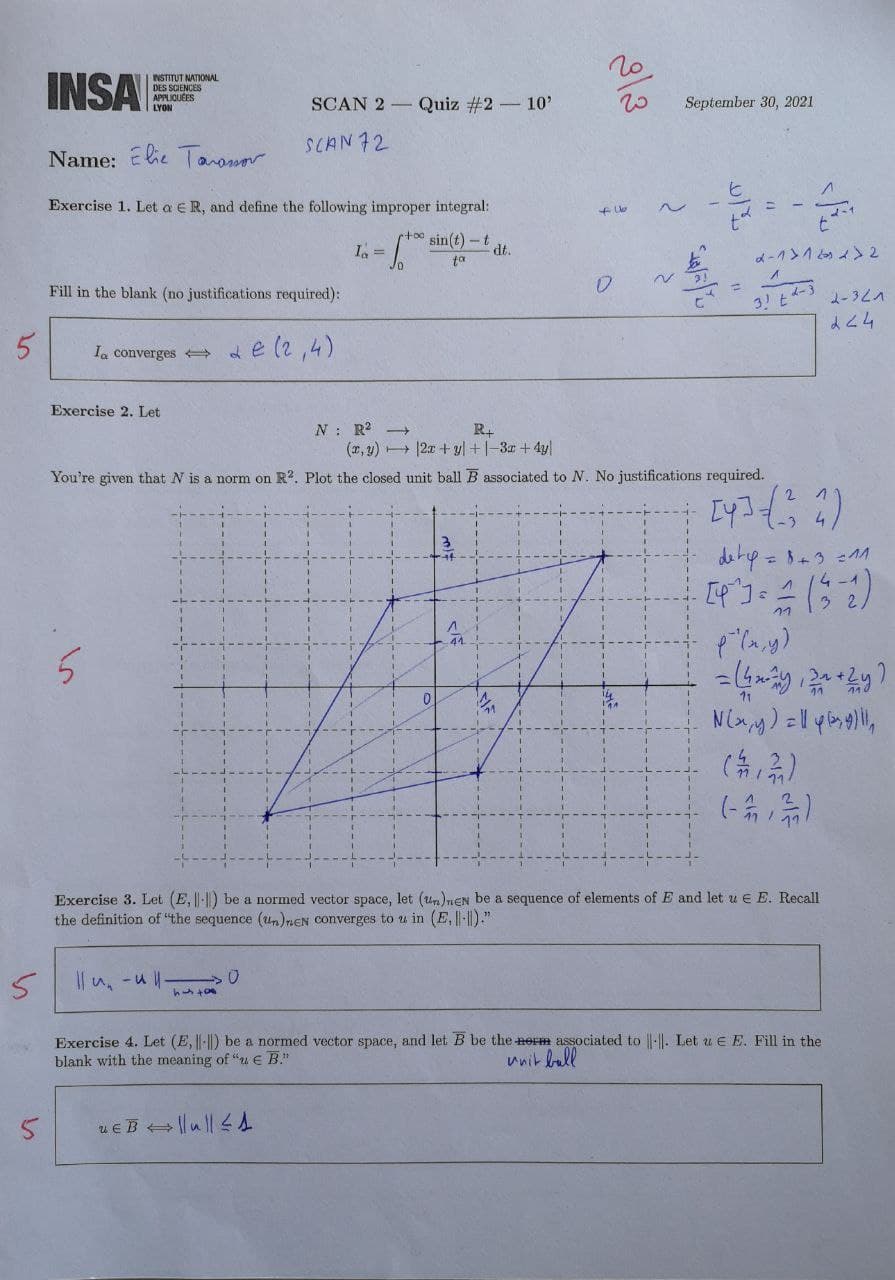 INSA INSTITUT NATIONAL
DES SCIENCES
APPLIQUÉES
LYON
SCAN 2 — Quiz #2 — 10’
20/20
September 30, 2021
Name: Elie Tarassov SCAN 72
Exercise 1. Let α ∈ ℝ, and define the following improper integral:
I_α = ∫_0^{+∞} (sin(t) − t)/t^α dt.
+∞ ~ − t/t^α = − 1/t^{α-1}
α-1>1 ⟺ α>2
0 ~ /3!/t^α = 1/(3! t^{α-3})
α-3<1
α<4
Fill in the blank (no justifications required):
5
I_α converges ⟺ α ∈ (2,4)
Exercise 2. Let
N : ℝ² ⟶ ℝ₊
(x, y) ⟼ |2x + y| + |−3x + 4y|
You’re given that N is a norm on ℝ². Plot the closed unit ball B̅ associated to N. No justifications required.
3/11
1/11
0
1/11
4/11
5
[φ] = (2 1
-3 4)
det φ = 8+3 = 11
[φ⁻¹] = 1/11 (4 -1
3 2)
φ⁻¹(x,y)
= (4/11 x - 1/11 y, 3x/11 + 2/11 y)
N(x,y) = ||φ(x,y)||₁
(4/11, 3/11)
(-1/11, 2/11)
Exercise 3. Let (E, ‖·‖) be a normed vector space, let (uₙ)ₙ∈ℕ be a sequence of elements of E and let u ∈ E. Recall
the definition of “the sequence (uₙ)ₙ∈ℕ converges to u in (E, ‖·‖).”
5
||uₙ - u|| ⟶ 0
n→+∞
Exercise 4. Let (E, ‖·‖) be a normed vector space, and let B̅ be the norm associated to ‖·‖. Let u ∈ E. Fill in the
unit ball
blank with the meaning of “u ∈ B̅.”
5
u ∈ B̅ ⟺ ||u|| ≤ 1